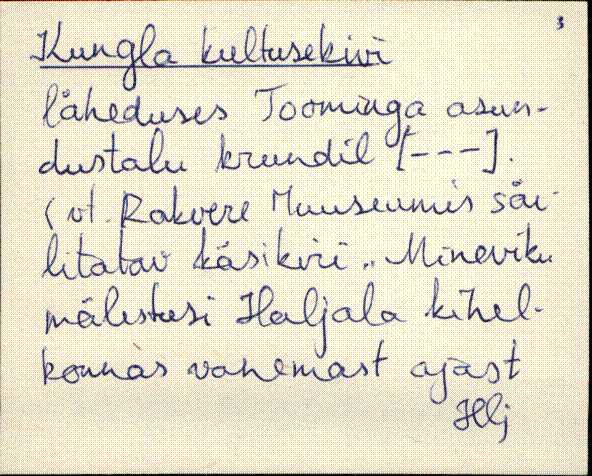 3
Kungla kultusekivi
läheduses Toominga asun-
dustalu krundil [---].
(vt. Rakvere Muuseumis säi-
litatav käsikiri „Mineviku
mälestusi Haljala kihel-
konnas vanemast ajast
Hlj